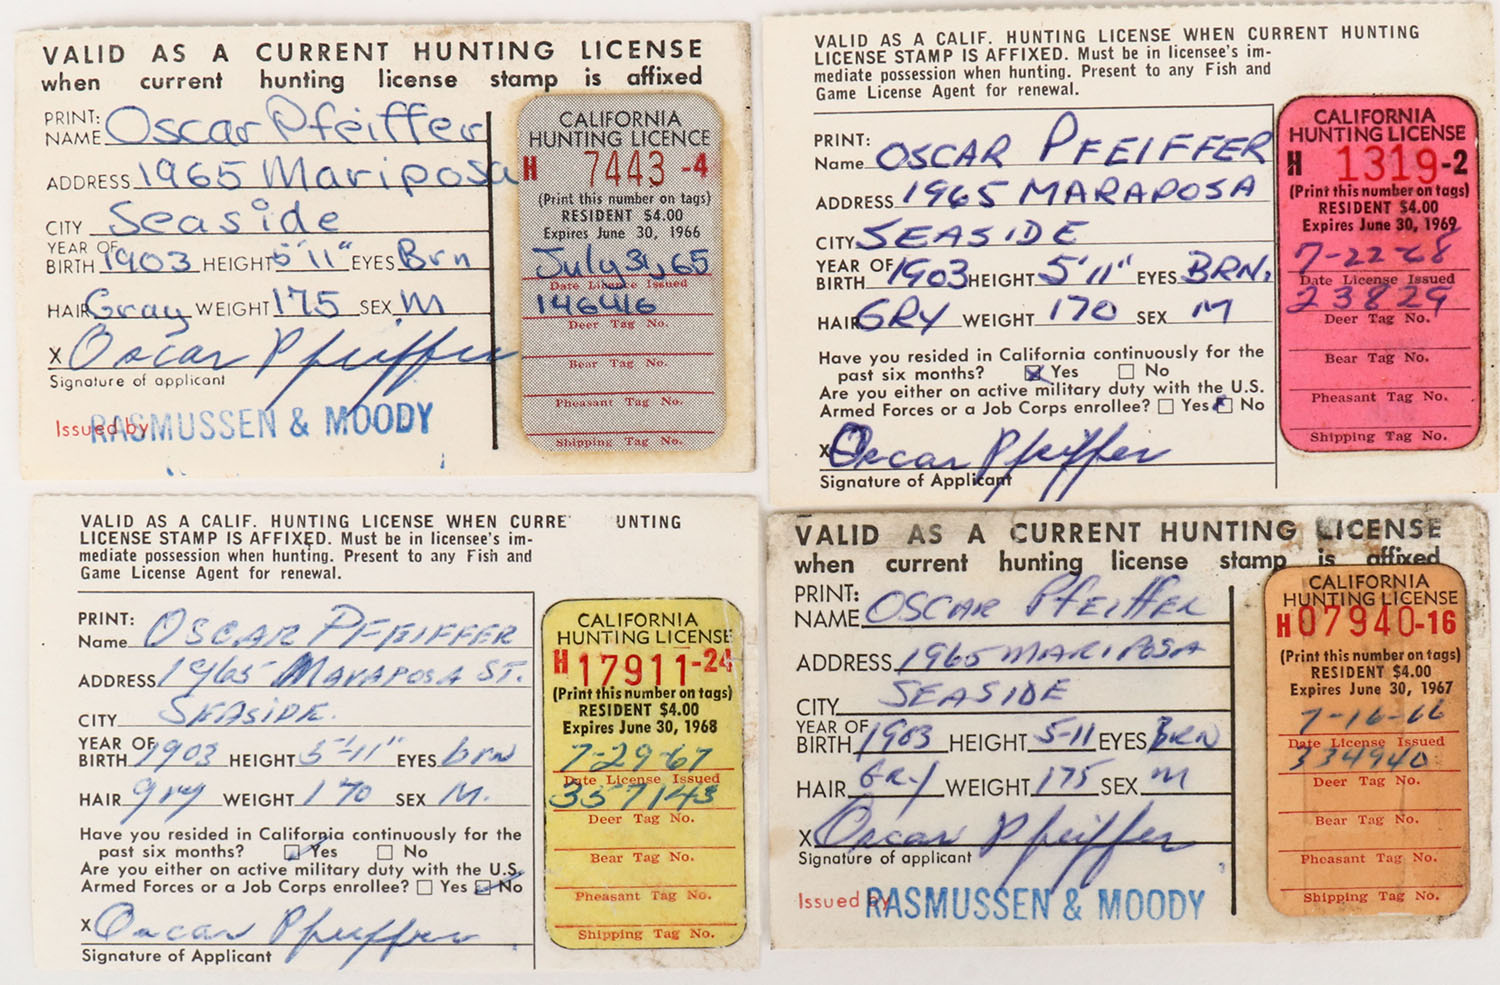 VALID AS A CURRENT HUNTING LICENSE
when current hunting license stamp is affixed
PRINT:
NAME Oscar Pfeiffer
ADDRESS 1965 Mariposa
CITY Seaside
YEAR OF
BIRTH 1903 HEIGHT 5'11" EYES Brn
HAIR Gray WEIGHT 175 SEX M
X Oscar Pfeiffer
Signature of applicant
Issued by RASMUSSEN & MOODY
CALIFORNIA
HUNTING LICENCE
H 7443-4
(Print this number on tags)
RESIDENT $4.00
Expires June 30, 1966
July 31, 65
Date Licence Issued
146416
Deer Tag No.
Bear Tag No.
Pheasant Tag No.
Shipping Tag No.
VALID AS A CALIF. HUNTING LICENSE WHEN CURRENT HUNTING
LICENSE STAMP IS AFFIXED. Must be in licensee's im-
mediate possession when hunting. Present to any Fish and
Game License Agent for renewal.
PRINT:
Name OSCAR PFEIFFER
ADDRESS 1965 MARAPOSA
CITY SEASIDE
YEAR OF
BIRTH 1903 HEIGHT 5'11" EYES BRN.
HAIR GRY WEIGHT 170 SEX M
Have you resided in California continuously for the
past six months? Yes No
Are you either on active military duty with the U.S.
Armed Forces or a Job Corps enrollee? Yes No
X Oscar Pfeiffer
Signature of Applicant
CALIFORNIA
HUNTING LICENSE
H 1319-2
(Print this number on tags)
RESIDENT $4.00
Expires June 30, 1969
7-22-68
Date License Issued
23829
Deer Tag No.
Bear Tag No.
Pheasant Tag No.
Shipping Tag No.
VALID AS A CALIF. HUNTING LICENSE WHEN CURRE UNTING
LICENSE STAMP IS AFFIXED. Must be in licensee's im-
mediate possession when hunting. Present to any Fish and
Game License Agent for renewal.
PRINT:
Name OSCAR PFEIFFER
ADDRESS 1965 MARAPOSA ST.
CITY SEASIDE.
YEAR OF
BIRTH 1903 HEIGHT 5'-11" EYES brn
HAIR gry WEIGHT 170 SEX M.
Have you resided in California continuously for the
past six months? Yes No
Are you either on active military duty with the U.S.
Armed Forces or a Job Corps enrollee? Yes No
X Oscar Pfeiffer
Signature of Applicant
CALIFORNIA
HUNTING LICENSE
H 17911-24
(Print this number on tags)
RESIDENT $4.00
Expires June 30, 1968
7-29-67
Date License Issued
357143
Deer Tag No.
Bear Tag No.
Pheasant Tag No.
Shipping Tag No.
VALID AS A CURRENT HUNTING LICENSE
when current hunting license stamp is affixed
PRINT:
NAME OSCAR PfEIffER
ADDRESS 1965 MARIPOSA
CITY SEASIDE
YEAR OF
BIRTH 1903 HEIGHT 5-11 EYES BRN
HAIR GRY WEIGHT 175 SEX M
X Oscar Pfeiffer
Signature of applicant
Issued By RASMUSSEN & MOODY
CALIFORNIA
HUNTING LICENSE
H 07940-16
(Print this number on tags)
RESIDENT $4.00
Expires June 30, 1967
7-16-66
Date License Issued
334940
Deer Tag No.
Bear Tag No.
Pheasant Tag No.
Shipping Tag No.